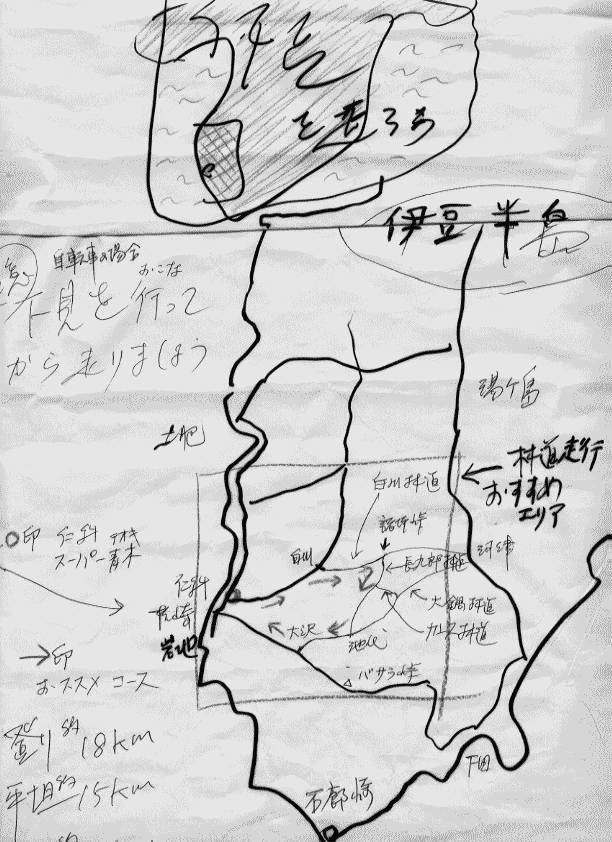 を走ろう
伊豆半島
自転車の場合
おこな
下見を行って
から走りましょう
湯ケ島
土肥
林道走行
おすすめ
エリア
白川林道
諸坪峠
○印 仁科
スーパー青木
白川
←長九郎林道
河津
仁科
大鍋林道
岩地
大沢
池代
→印
おススメ コース
バサラ峠
登り 18km
平坦 15km
下田
石廊崎